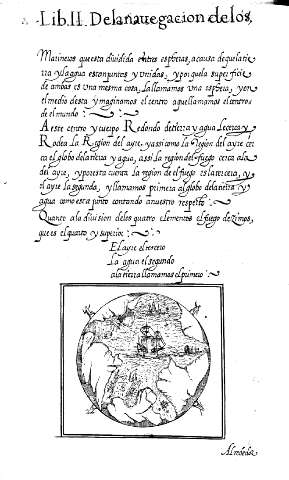 Lib.II. De la nauegacion de los,
Matineus que esta diuidida entres espheras, a causa de que la tie
rra y la agua estan juntas y Vnidas: y por que la superficie
de ambas es una mesma cosa, La llamamos una esphera, y en
el medio desta ymaginamos el centro a que llamamos el centro
del mundo:
A este centro y cuerpo Redondo de tierra y agua Le cerca y
Rodea La Region del ayre, y assi como la Region del ayre cer
ca el globo de la tierra y agua, assi la region del fuego cerca ala
del ayre, y por esta cuenta la region del fuego es la tercera, y
el ayre la segunda, y llamamos primera al globo de la tierra y
agua como esta junto contando a nuestro respecto:
Quanto ala diuision de los quatro elementos el fuego dezimos,
que es el quarto y superior:
El ayre el tercero
La agua el segundo
ala tierra llamamos el primero:
Al rededor